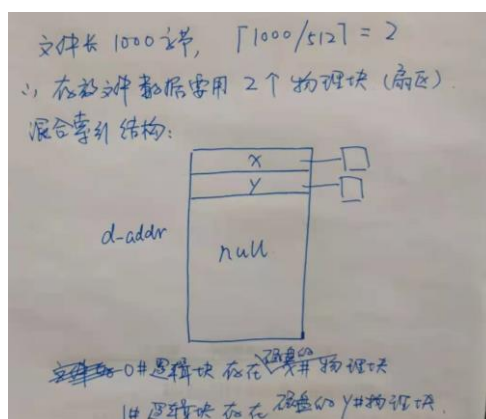 文件长 1000字节, ⌈1000/512⌉ = 2
∴ 存放文件数据需用 2个物理块 (扇区).
混合索引结构:
x
y
d-addr
null
0#逻辑块 存在 磁盘的 X# 物理块
1#逻辑块 存在 磁盘的 Y#物理块.